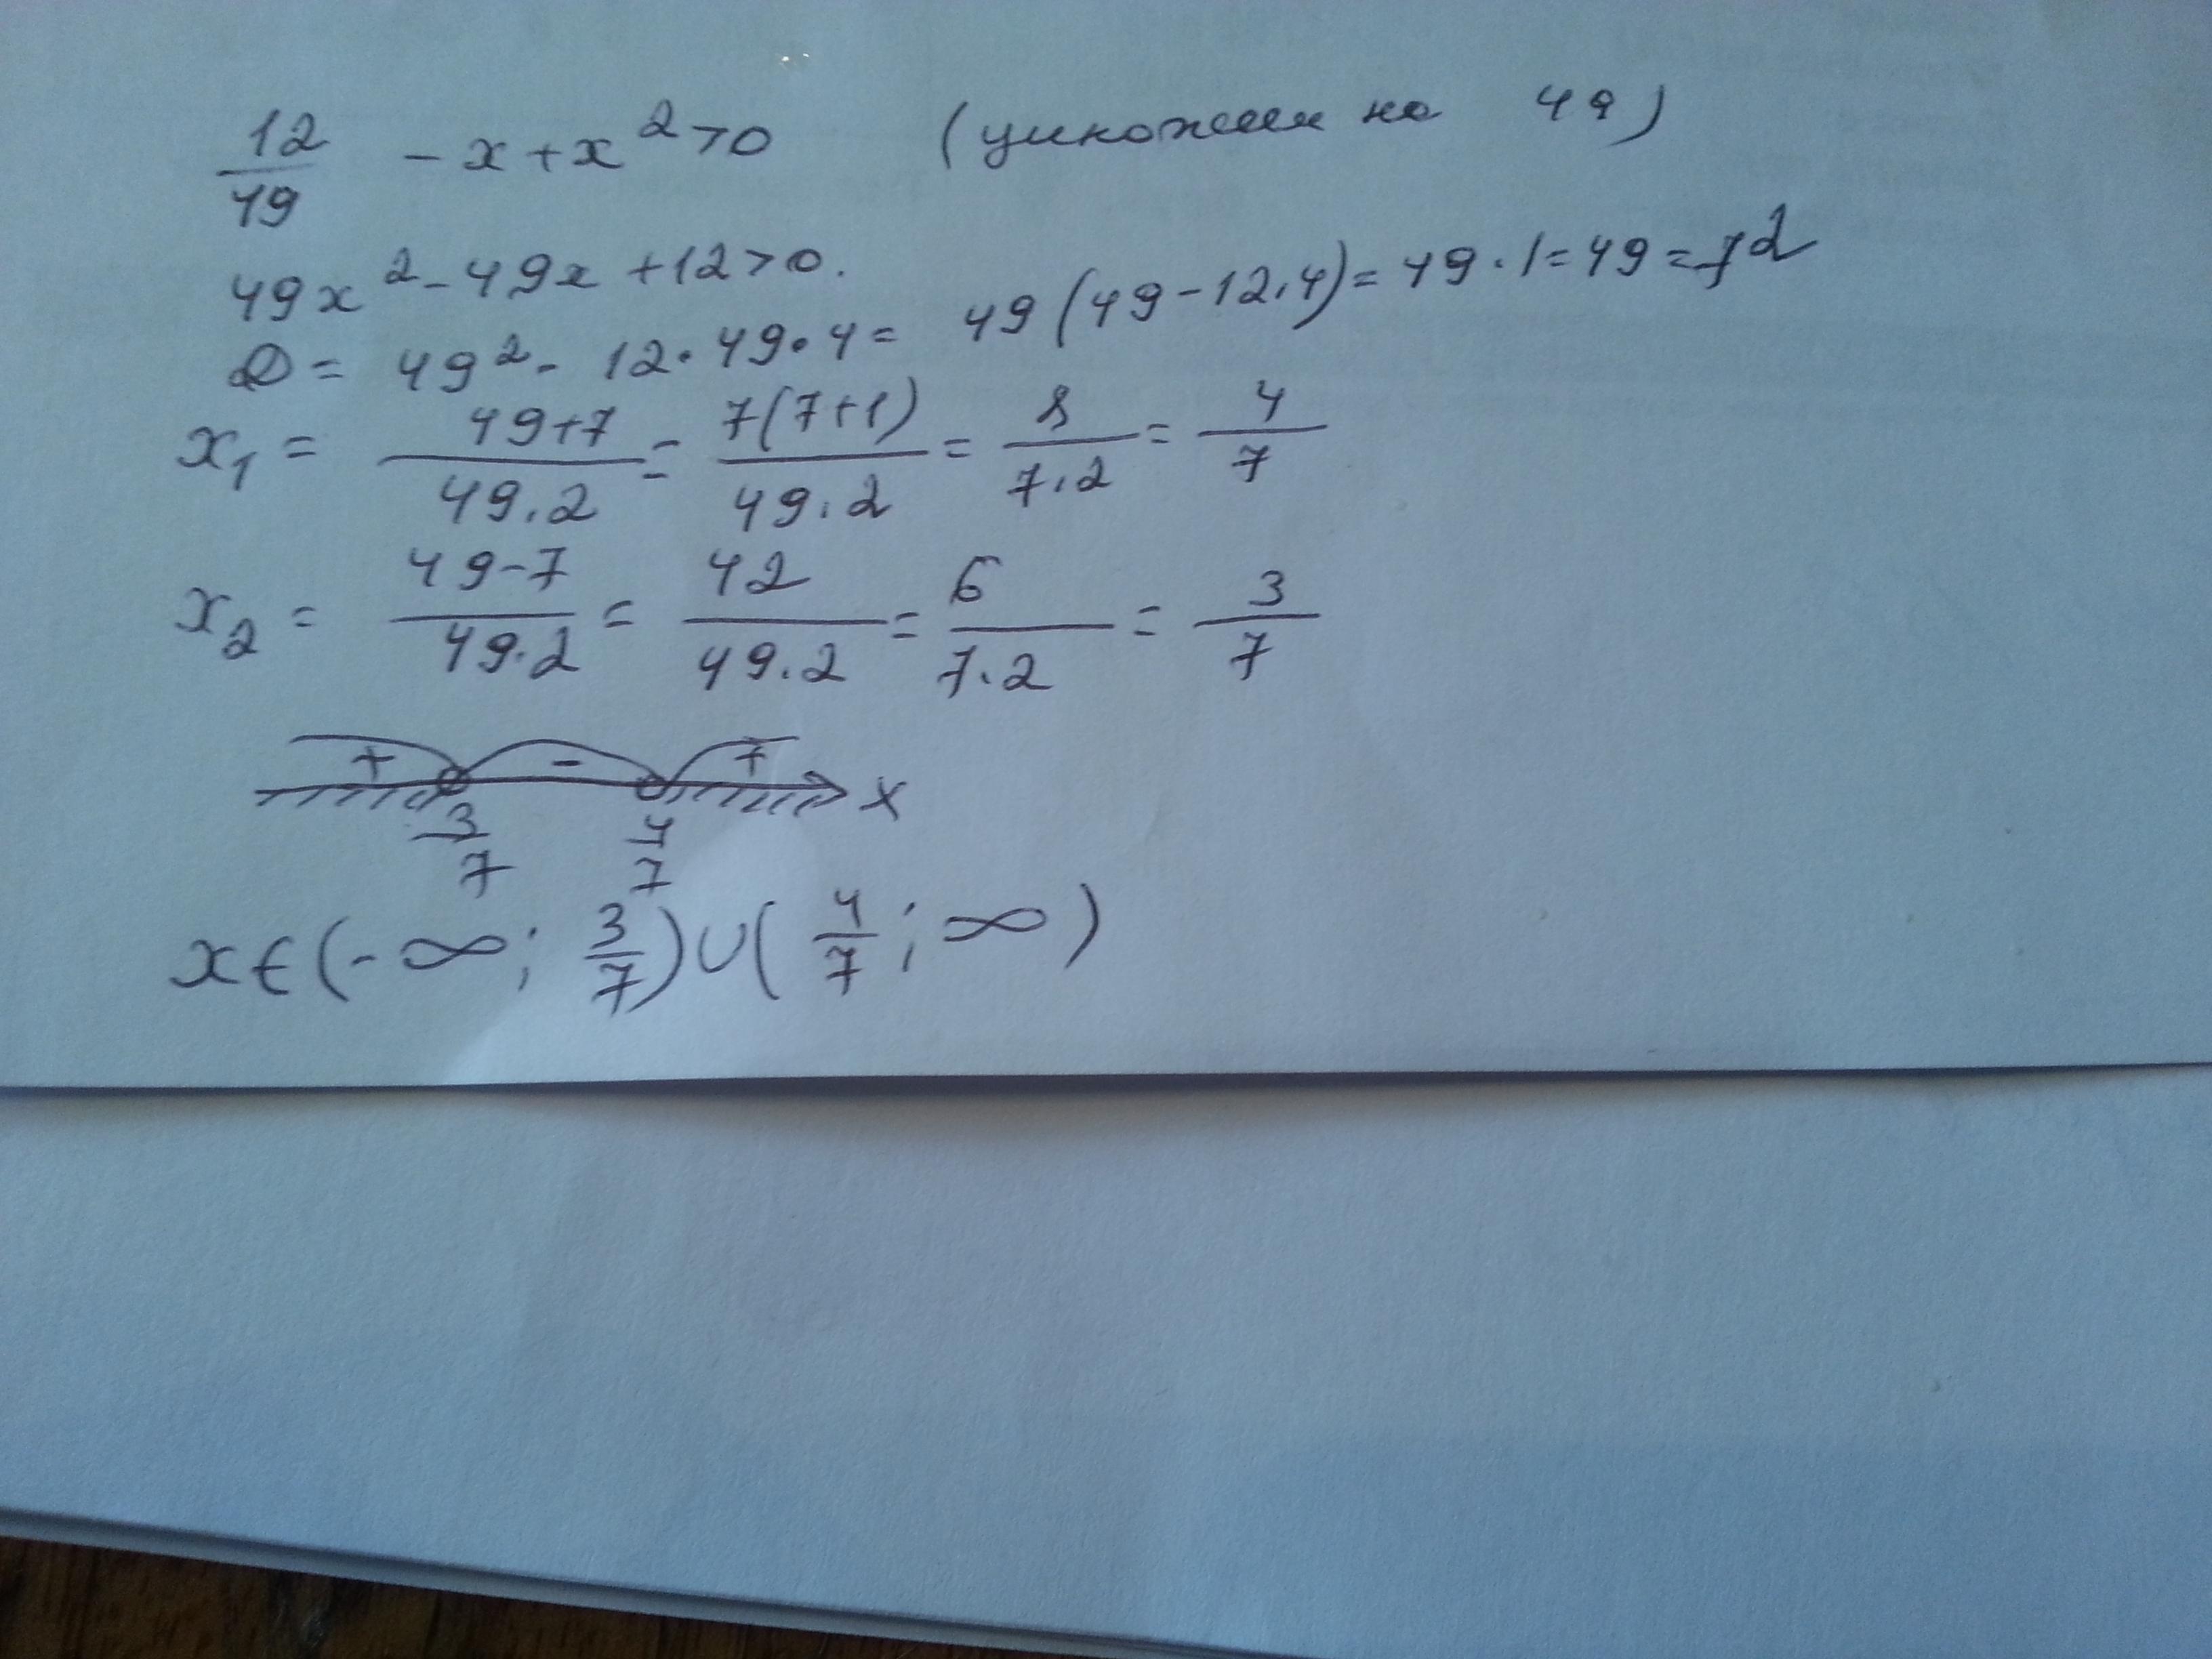 12/49 - x + x² > 0 (умножаем на 49)
49x² - 49x + 12 > 0.
D = 49² - 12·49·4 = 49(49 - 12·4) = 49·1 = 49 = 7²
x₁ = (49+7)/(49·2) = 7(7+1)/(49·2) = 8/(7·2) = 4/7
x₂ = (49-7)/(49·2) = 42/(49·2) = 6/(7·2) = 3/7
+ - + x
3/7 4/7
x ∈ (-∞; 3/7) ∪ (4/7; ∞)